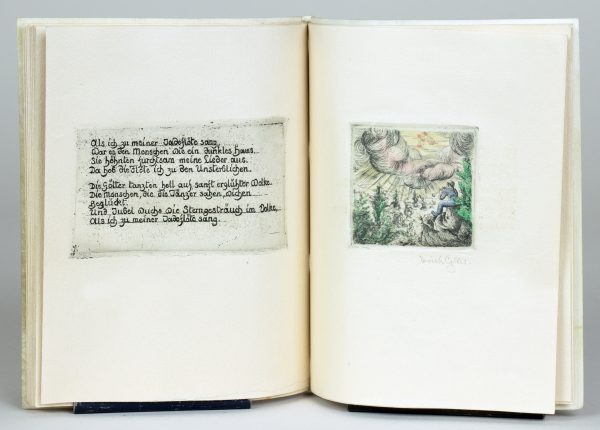 Als ich zu meiner Jadeflöte sang,
War es den Menschen wie ein dunkles Haus.
Sie höhnten furchtsam meine Lieder aus.
Da hob die Flöte ich zu den Unsterblichen.
Die Götter tanzten hell auf sanft erglühter Wolke.
Die Menschen, die die Tänzer sahen, wichen
Beglückt.
Und Jubel wuchs wie Sterngesträuch im Volke,
Als ich zu meiner Jadeflöte sang.